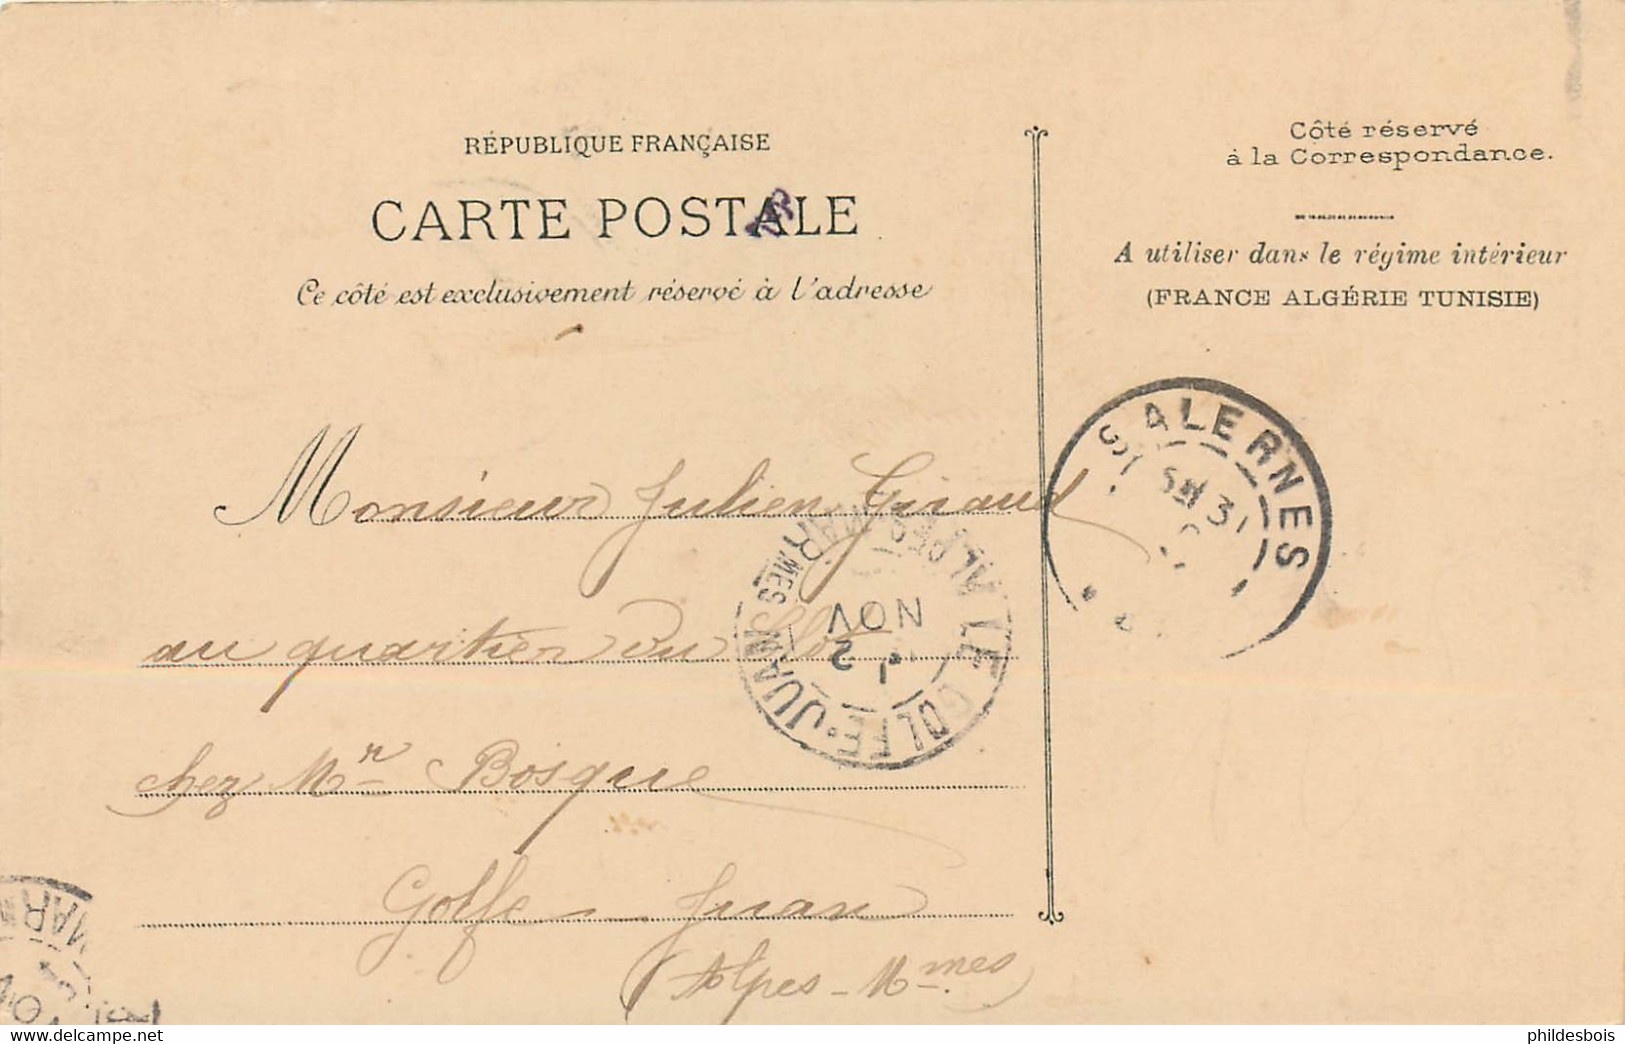 RÉPUBLIQUE FRANÇAISE
CARTE POSTALE
Ce côté est exclusivement réservé à l'adresse
Côté réservé
à la Correspondance.
A utiliser dans le régime intérieur
(FRANCE ALGÉRIE TUNISIE)
SALERNES
31
Monsieur Julien Giraud
au quartier du
chez Mr Bosque
Golfe-Juan
Alpes-Mmes
LE GOLFE-JUAN
ALPES MARMES
NOV
MAR
phildesbois
www.delcampe.net